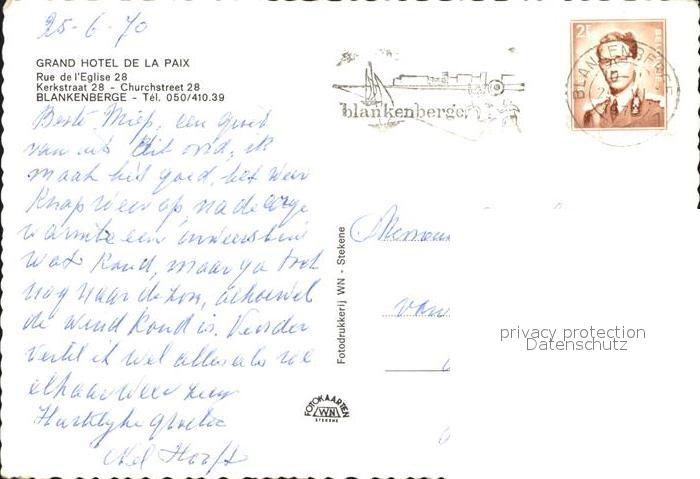 25-6-70
GRAND HOTEL DE LA PAIX
Rue de l'Eglise 28
Kerkstraat 28 - Churchstreet 28
BLANKENBERGE - Tél. 050/410.39
Beste Miep, een groet
van uit dit oord, ik
maak het goed, het weer
knap weer op, na de erge
warmte een
wat koud, maar ja toch
nog naar de zon, alhoewel
de wind koud is. Verder
vertel ik wel alles als we
elkaar weer zien
Hartelijke groeten
Nel Hooft
blankenberge
2F
BELGIE
BLANKENBERGE
Fotodrukkerij WN - Stekene
FOTOKAARTEN
WN
STEKENE
Mevrouw
van
privacy protection
Datenschutz